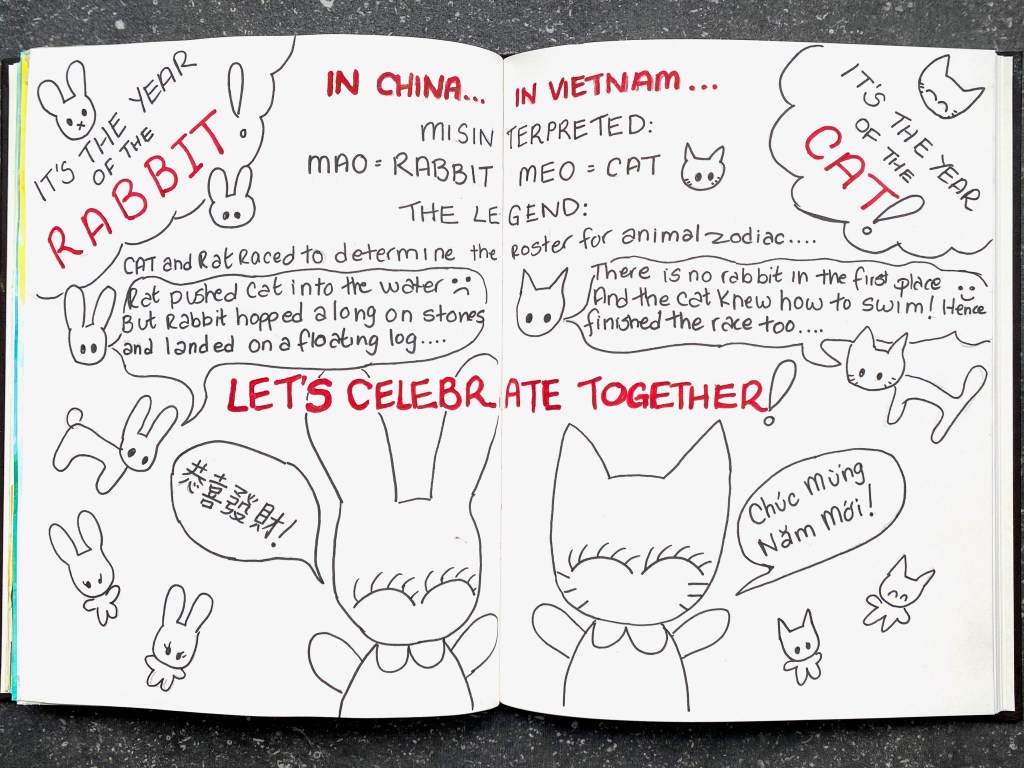 IT'S THE YEAR
OF THE
RABBIT!
IN CHINA... IN VIETNAM...
MISINTERPRETED:
MAO = RABBIT MEO = CAT
THE LEGEND:
IT'S THE YEAR
OF THE
CAT!
CAT and Rat Raced to determine the Roster for animal zodiac....
Rat pushed Cat into the water
But Rabbit hopped along on stones
and landed on a floating log....
There is no rabbit in the first place
And the cat knew how to swim! Hence
finished the race too....
LET'S CELEBRATE TOGETHER!
恭喜發財!
Chúc Mừng
Năm Mới!